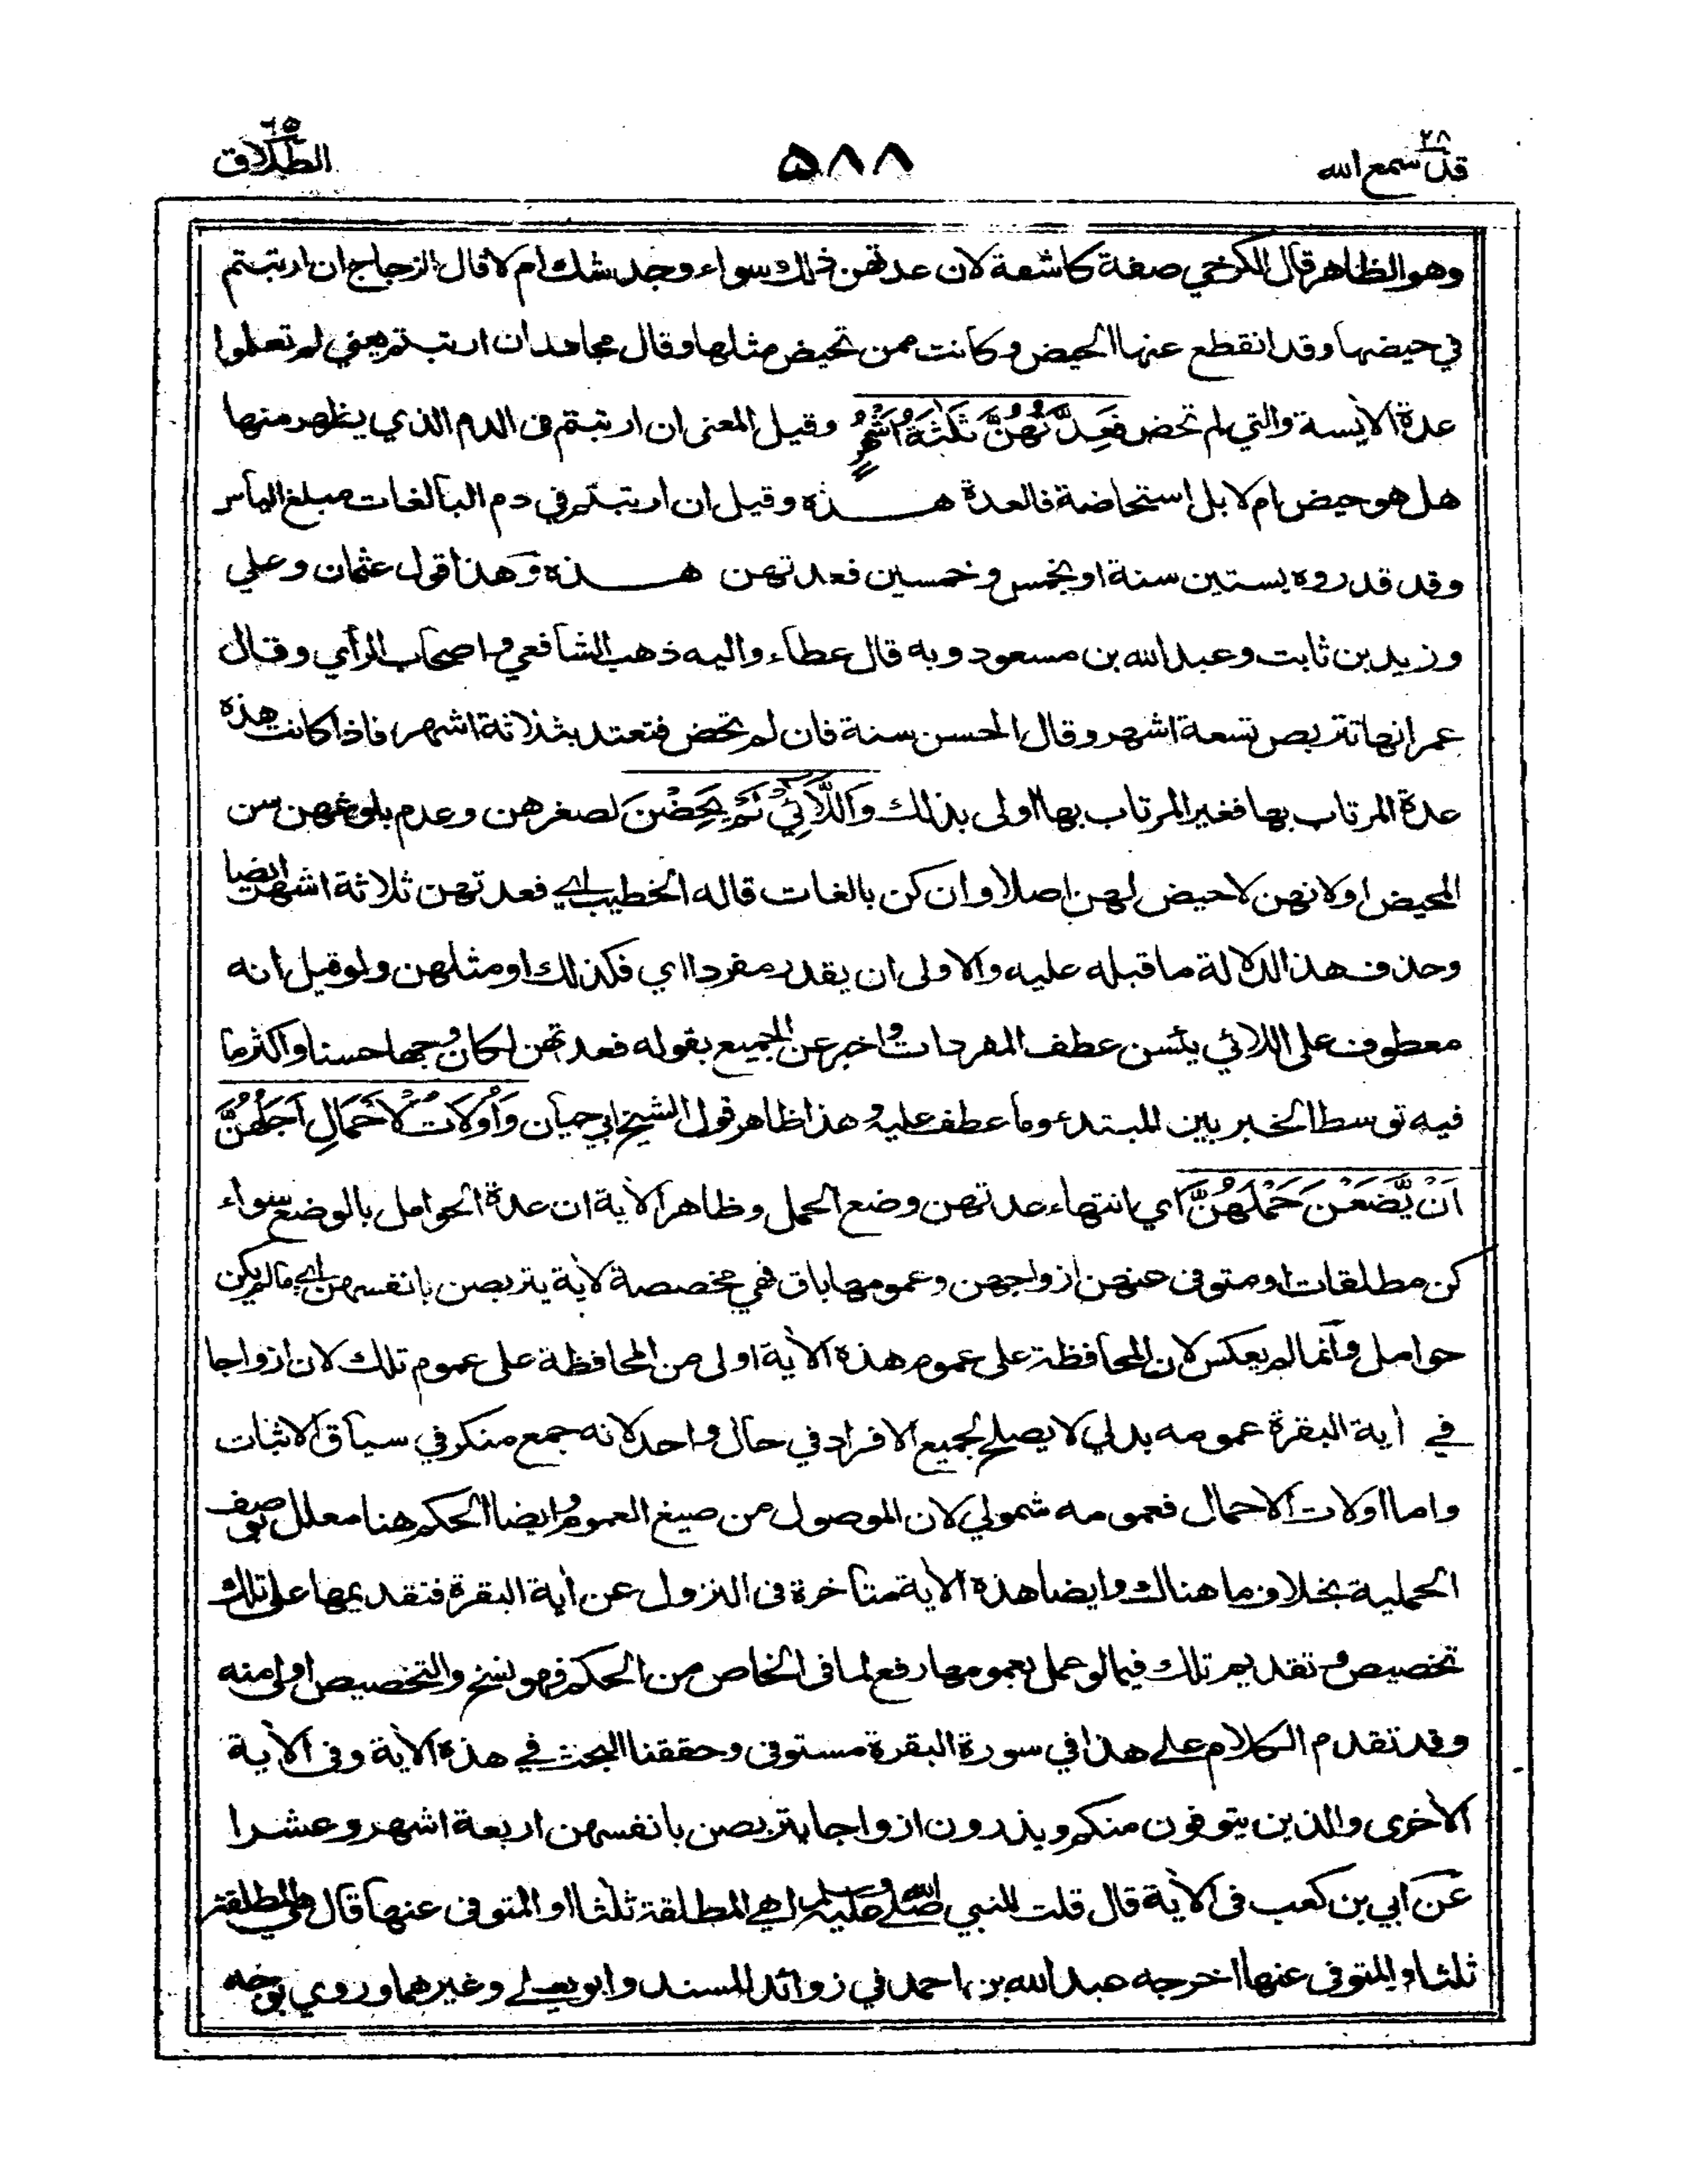 قد سمع الله ٢٨
٥٨٨
الطلاق ٦٥
وهو الظاهر قال الكرخي صفة كاشفة لان عدتهن ذلك سواء وجد شك ام لا قال الزجاج ان ارتبتم
في حيضها وقد انقطع عنها الحيض وكانت ممن تحيض مثلها وقال مجاهد ان ارتبتم يعني لم تعلموا
عدة الأيسة والتي لم تحض فَعِدَّتُهُنَّ ثَلٰثَةُ اَشْهُرٍ وقيل المعنى ان ارتبتم فى الدم الذي يظهر منها
هل هو حيض ام لا بل استحاضة فالعدة هـــذه وقيل ان ارتبتم في دم البالغات مبلغ الياس
وقد قدروه بستين سنة او بخمس وخمسين فعدتهن هـــذه وهذا قول عثمان وعلي
وزيد بن ثابت وعبد الله بن مسعود وبه قال عطاء واليه ذهب الشافعي واصحاب الرأي وقال
عمر انها تتربص تسعة اشهر وقال الحسن سنة فان لم تحض فتعتد بثلاثة اشهر، فاذا كانت هذه
عدة المرتاب بها فغير المرتاب بها اولى بذلك وَاللَّائِيْ لَمْ يَحِضْنَ لصغرهن وعدم بلوغهن سن
المحيض او لانهن لا حيض لهن اصلا وان كن بالغات قاله الخطيب اي فعدتهن ثلاثة اشهر ايضا
وحذف هذا لدلالة ما قبله عليه والاولى ان يقدر مفردا اي فكذلك او مثلهن ولو قيل انه
معطوف على اللائي يئسن عطف المفردات واخبر عن الجميع بقوله فعدتهن لكان وجها حسنا واكثر ما
فيه توسط الخبر بين المبتدء وما عطف عليه وهذا ظاهر قول الشيخ ابي حيان وَاُولَاتُ الْاَحْمَالِ اَجَلُهُنَّ
اَنْ يَّضَعْنَ حَمْلَهُنَّ اي انتهاء عدتهن وضع الحمل وظاهر الأية ان عدة الحوامل بالوضع سواء
كن مطلقات او متوفى عنهن ازواجهن وعمومها باق فهي مخصصة لأية يتربصن بانفسهن اي ما لم يكن
حوامل وانما لم يعكس لان المحافظة على عموم هذه الأية اولى من المحافظة على عموم تلك لان ازواجا
في أية البقرة عمومه بدلي لا يصلح لجميع الافراد في حال واحد لانه جمع منكر في سياق الاثبات
واما اولات الاحمال فعمومه شمولي لان الموصول من صيغ العموم وايضا الحكم هنا معلل بوصف
الحملية بخلاف ما هناك وايضا هذه الأية متأخرة فى النزول عن أية البقرة فتقديمها على تلك
تخصيص وتقديم تلك فيما لو عمل بعمومها رفع لما فى الخاص من الحكم فهو نسخ والتخصيص اولى منه
وقد تقدم الكلام على هذا في سورة البقرة مستوفى وحققنا البحث في هذه الأية وفى الأية
الأخرى والذين يتوفون منكم ويذرون ازواجا يتربصن بانفسهن اربعة اشهر وعشرا
عن ابي بن كعب فى الأية قال قلت للنبي صلى الله عليه وسلم اهي المطلقة ثلثا او المتوفى عنها قال هي المطلقة
ثلثا والمتوفى عنها اخرجه عبد الله بن احمد في زوائد المسند وابو يعلى وغيرهما وروي نحوه